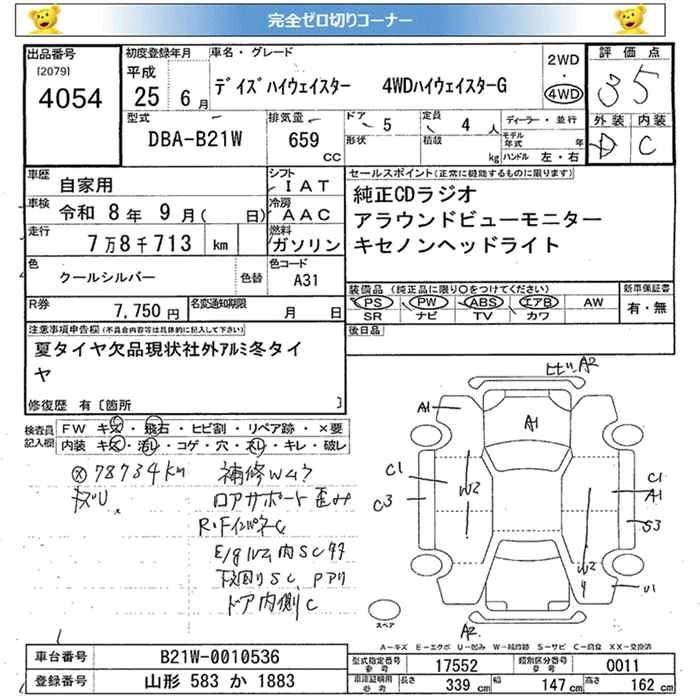 完全ゼロ切りコーナー
出品番号
[2079]
4054
初度登録年月
平成
25 6 月
車名・グレード
デイズハイウェイスター 4WDハイウェイスターG
2WD
・
4WD
評価点
3.5
外装 内装
D C
型式
DBA-B21W
排気量
659
CC
ドア 5
形状
定員 4 人
積載 kg
ディーラー・並行
モデル年式 年
ハンドル 左・右
車歴
自家用
シフト
IAT
車検
令和 8 年 9 月( 日)
冷房
AAC
走行
7万8千713 km
燃料
ガソリン
色
クールシルバー
色替
色コード
A31
R券
7,750 円
名変通知期限
月 日
セールスポイント(正常に機能するものに限ります)
純正CDラジオ
アラウンドビューモニター
キセノンヘッドライト
装備品 (純正品に限り○をつけてください)
PS PW ABS エアB AW
SR ナビ TV カワ
新車保証書
有・無
後日品
注意事項申告欄(不具合内容等は具体的に記入して下さい)
夏タイヤ欠品現状社外アルミ冬タイ
ヤ
修復歴 有〔箇所 〕
検査員
記入欄
FW キズ・飛石・ヒビ割・リペア跡・×要
内装 キズ・汚れ・コゲ・穴・スレ・キレ・破レ
78734km
補修Wムラ
ロアサポート歪み
R・Fインパネ C
E/gルーム内SCサタ
下回りSC、Pアリ
ドア内側C
ヒビ、A2
A1
A1
C1
C3
W2
C1
A1
S3
W2
U1
A2
スペア
A-キズ E-エクボ U-凹み W-補修跡 S-サビ C-腐食 XX-交換済
車台番号 B21W-0010536
登録番号 山形 583 か 1883
型式指定番号
参考
17552
類別区分番号
参考
0011
車庫証明用
参考
長さ 339 cm 幅 147 cm 高さ 162 cm